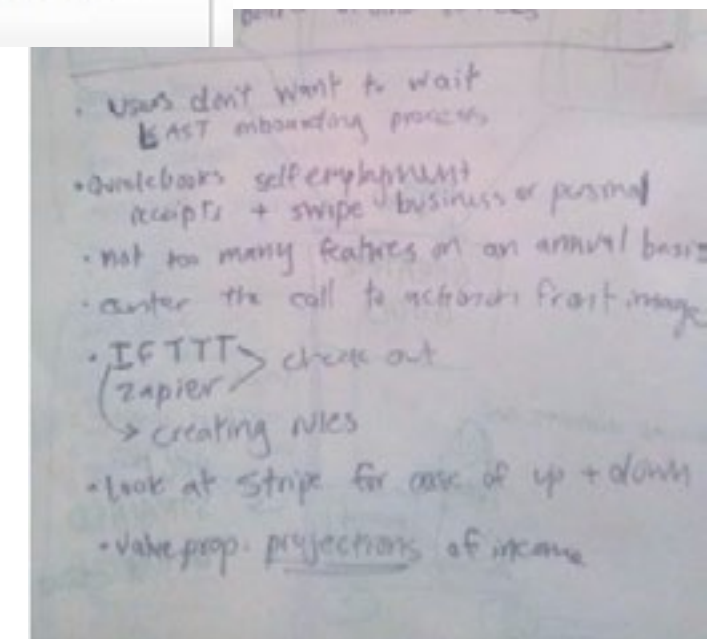 • Users don't want to wait
FAST onboarding process
• Quickbooks self employment
receipts + swipe business or personal
• not too many features on an annual basis
• center the call to action on front image
• IFTTT > check out
Zapier
→ creating rules
• Look at Stripe for ease of up + down
• Value prop. projections of income